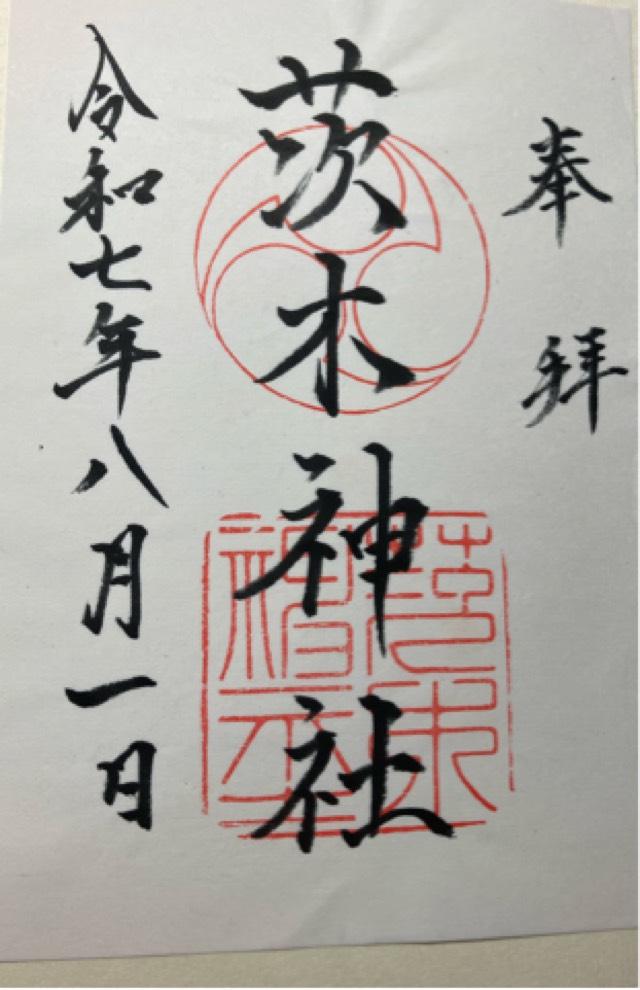 奉拝
茨木神社
令和七年八月一日